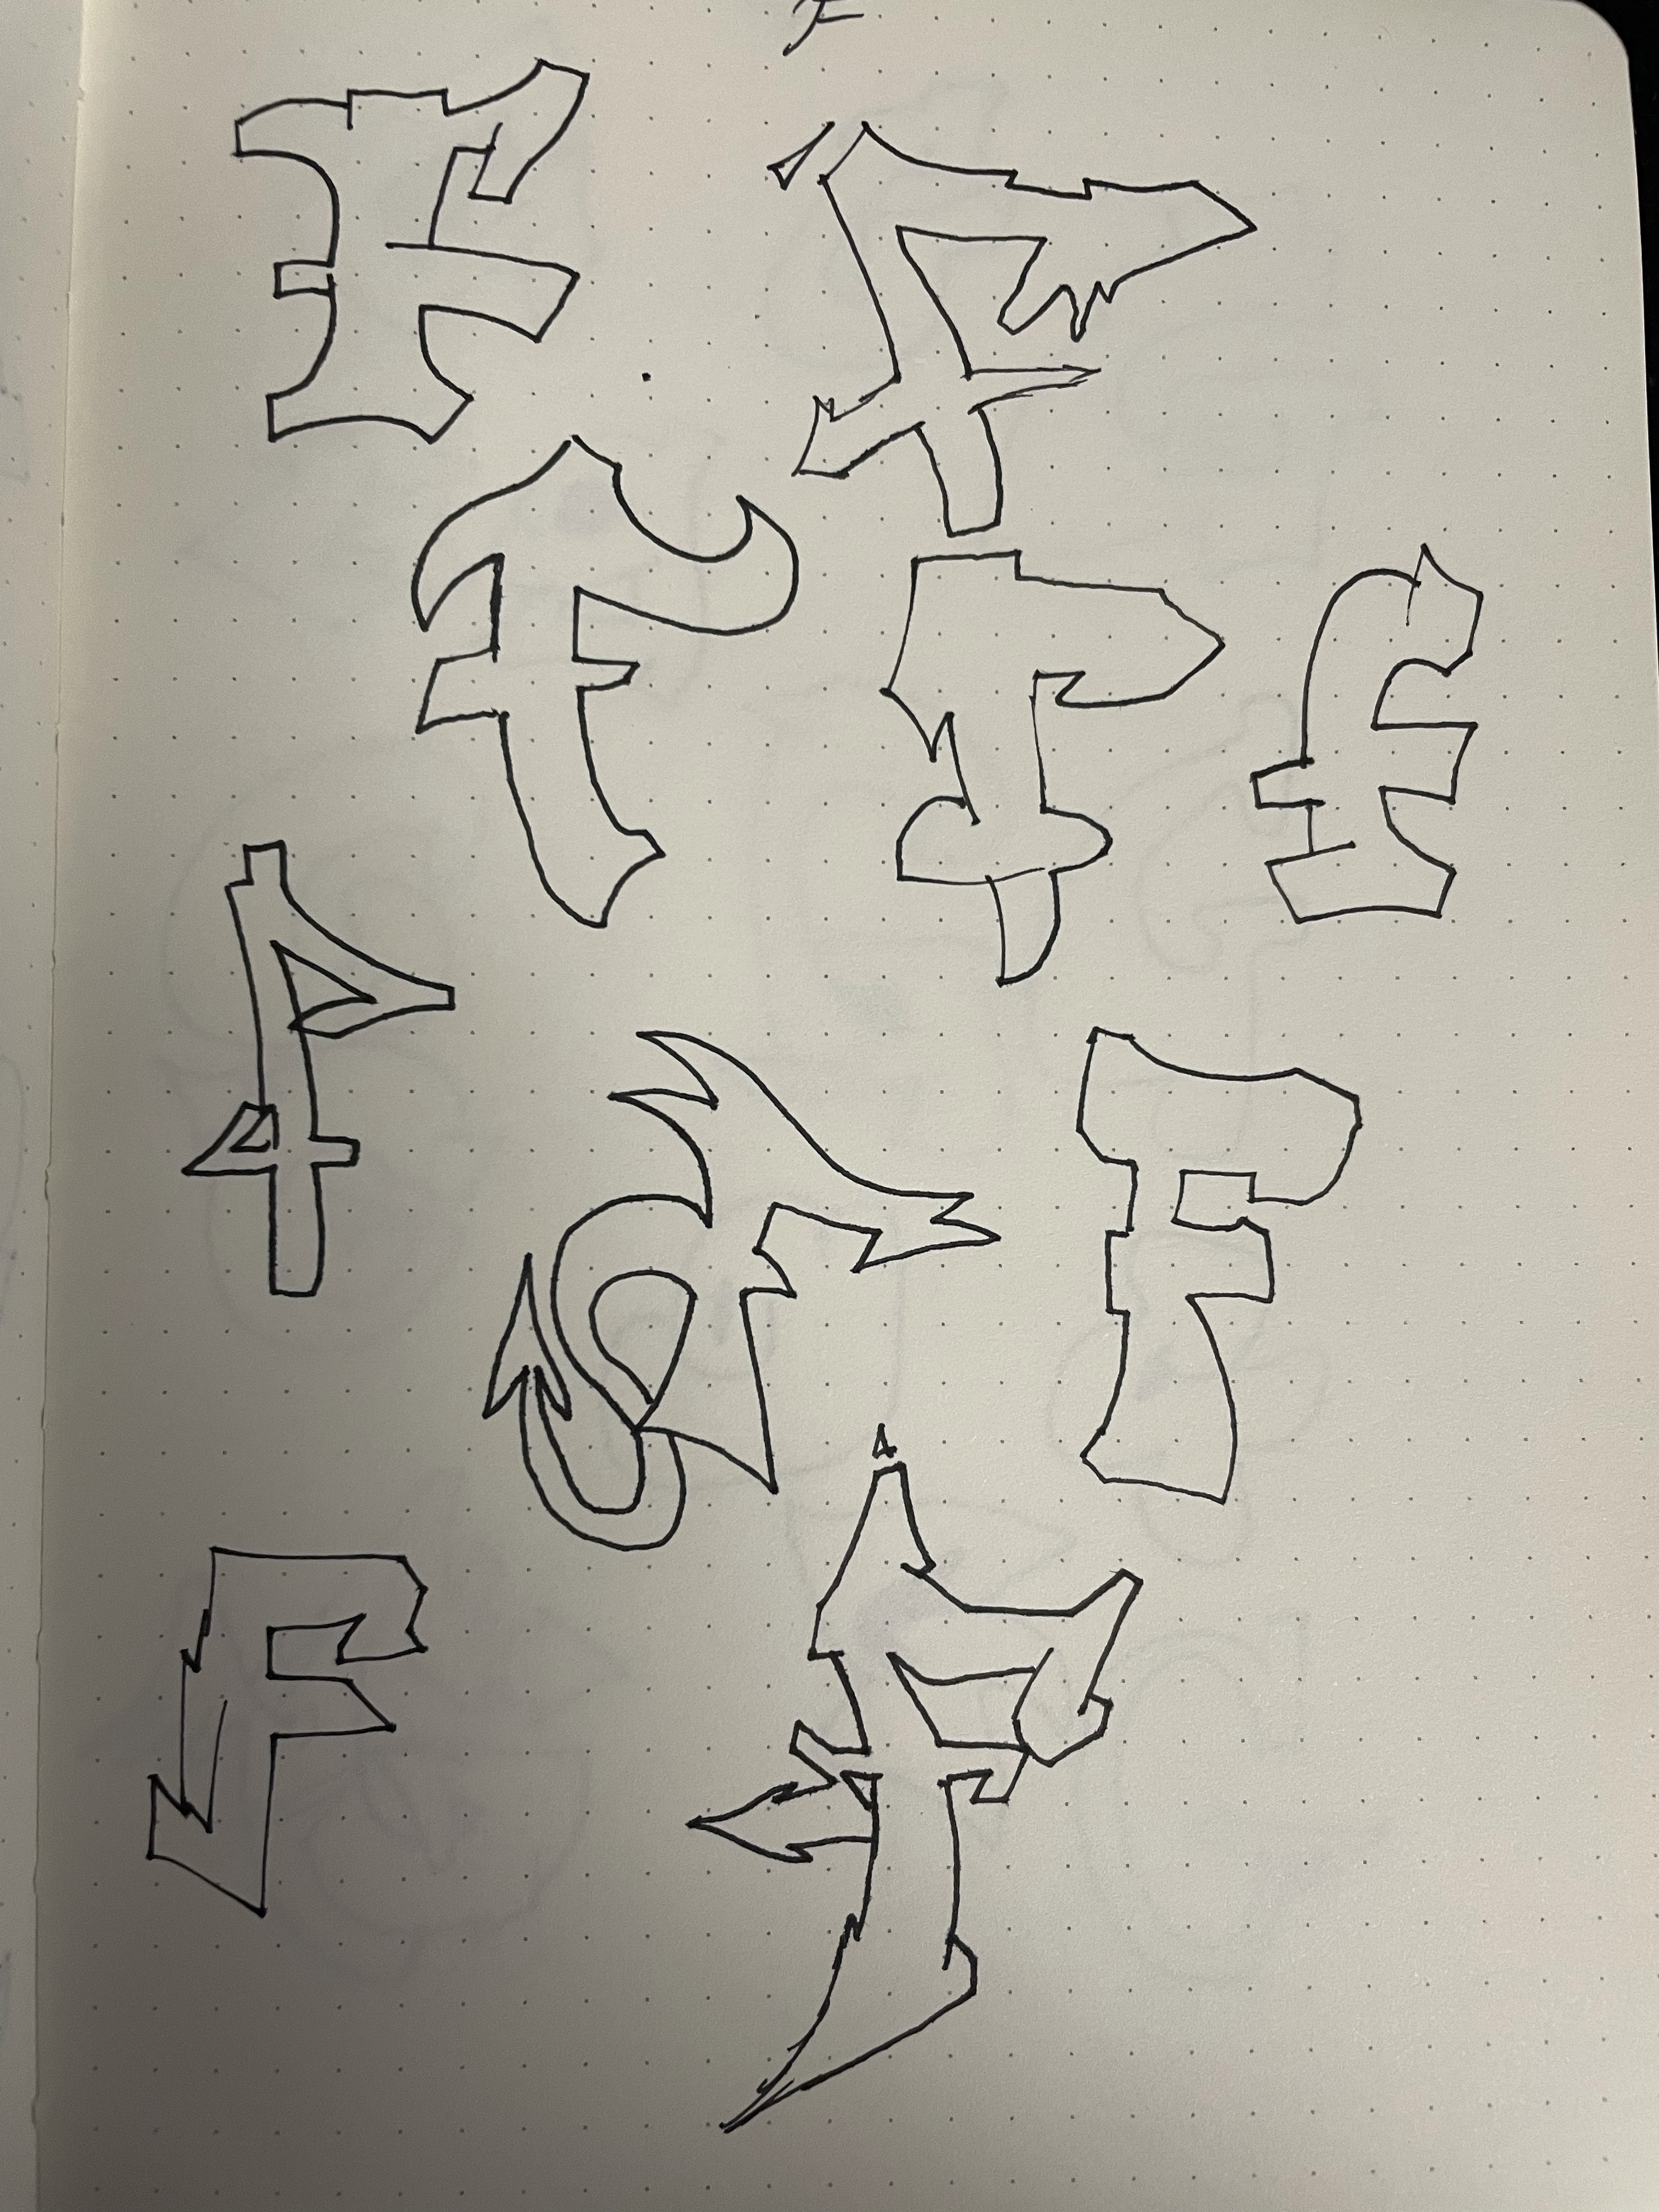 F
F F
F F F
F F F
F F